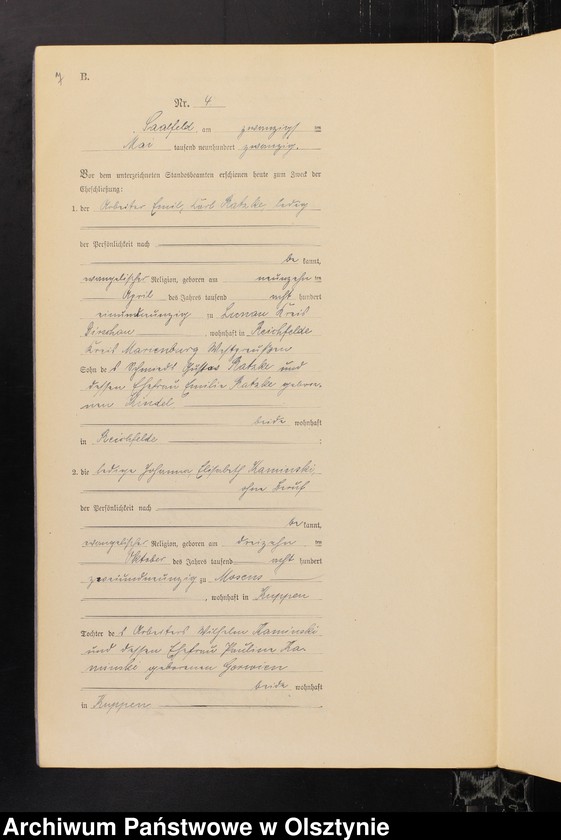 7
B.
Nr. 4
Saalfeld am zwanzigsten
Mai tausend neunhundert zwanzig.
Vor dem unterzeichneten Standesbeamten erschienen heute zum Zweck der
Eheschließung:
1. der Arbeiter Emil, Karl Ratzke, ledig
der Persönlichkeit nach
be kannt,
evangelischer Religion, geboren am neunzehn ten
April des Jahres tausend acht hundert
einundneunzig zu Lunau Kreis
Dirschau, wohnhaft in Reichfelde
Kreis Marienburg Westpreußen
Sohn des Schmiedt Gustav Ratzke und
dessen Ehefrau Emilie Ratzke gebore-
nen
beide wohnhaft
in Reichfelde :
2. die ledige Johanna, Elisabeth Kaminski,
ohne Beruf
der Persönlichkeit nach
be kannt,
evangelischer Religion, geboren am dreizehn ten
Oktober des Jahres tausend acht hundert
zweiundneunzig zu Mosens
, wohnhaft in Kuppen
Tochter des Arbeiters Wilhelm Kaminski
und dessen Ehefrau Pauline Ka-
minski geborenen
beide wohnhaft
in Kuppen
Archiwum Państwowe w Olsztynie